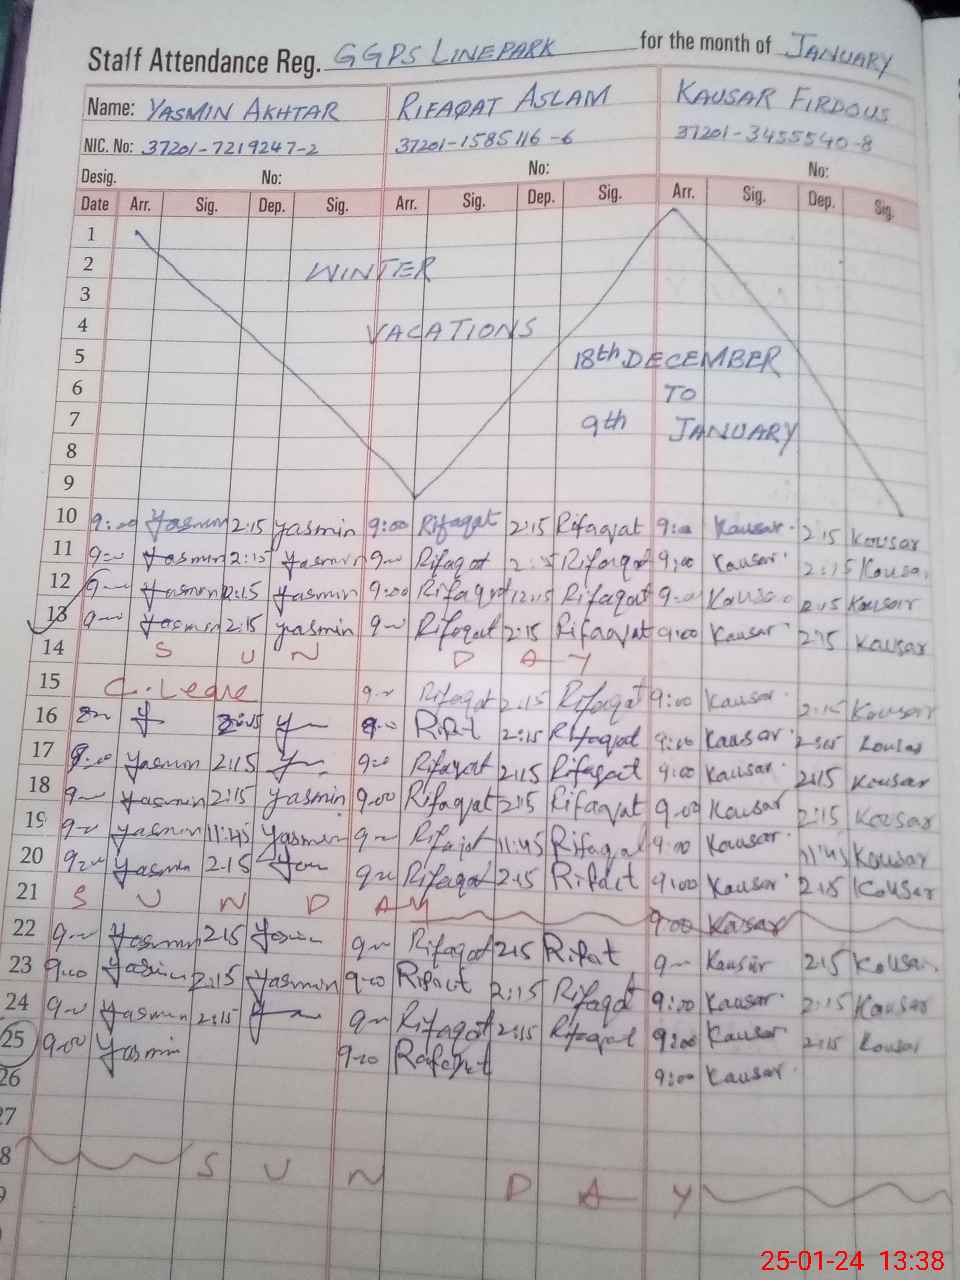 Staff Attendance Reg. GGPS LINEPARK for the month of JANUARY
Name: YASMIN AKHTAR RIFAQAT ASLAM KAUSAR FIRDOUS
NIC. No: 37201-7219247-2 37201-1585116-6 37201-3455540-8
Desig. No: No: No:
Date Arr. Sig. Dep. Sig. Arr. Sig. Dep. Sig. Arr. Sig. Dep. Sig.
1
2 WINTER
3
4 VACATIONS
5 18th DECEMBER
6 TO
7 9th JANUARY
8
9
10 9:00 Yasmin 2:15 yasmin 9:00 Rifaqat 2:15 Rifaqat 9:00 Kausar 2:15 Kousar
11 9-- Yasmin 2:15 Yasmin 9-- Rifaqat 2:15 Rifaqat 9:00 Kausar 2:15 Kousar
12 9-- Yasmin 2:15 Yasmin 9:00 Rifaqat 2:15 Rifaqat 9:00 Kausar 2:15 Kousar
13 9-- Yasmin 2:15 yasmin 9-- Rifaqat 2:15 Rifaqat 9:00 Kausar 2:15 Kausar
14 S U N D A Y
15 C. Leave 9-- Rifaqat 2:15 Rifaqat 9:00 Kausar 2:15 Kousar
16 Y 2:15 Y 9:00 Rifat 2:15 Rifaqat 9:00 Kausar 2:15 Kousar
17 9:00 Yasmin 2:15 Y 9:00 Rifaqat 2:15 Rifaqat 9:00 Kausar 2:15 Kousar
18 9-- Yasmin 2:15 yasmin 9:00 Rifaqat 2:15 Rifaqat 9:00 Kausar 2:15 Kousar
19 9-- Yasmin 11:45 Yasmin 9-- Rifaqat 11:45 Rifaqat 9:00 Kausar 11:45 Kousar
20 9:00 Yasmin 2:15 9-- Rifaqat 2:15 Rifact 9:00 Kausar 2:15 Kousar
21 S U N D A Y 9:00 Kausar
22 9-- Yasmin 2:15 9-- Rifaqat 2:15 Rifat 9-- Kausar 2:15 Kousar
23 9:00 Yasmin 2:15 Yasmin 9:00 Rifact 2:15 Rifaqat 9:00 Kausar 2:15 Kausar
24 9-- Yasmin 2:15 Y 9-- Rifaqat 2:15 Rifaqat 9:00 Kausar 2:15 Kousar
25 9:00 Yasmin 9:00 Rafaqat 9:00 Kausar
26
27
8 S U N D A Y
9
25-01-24 13:38